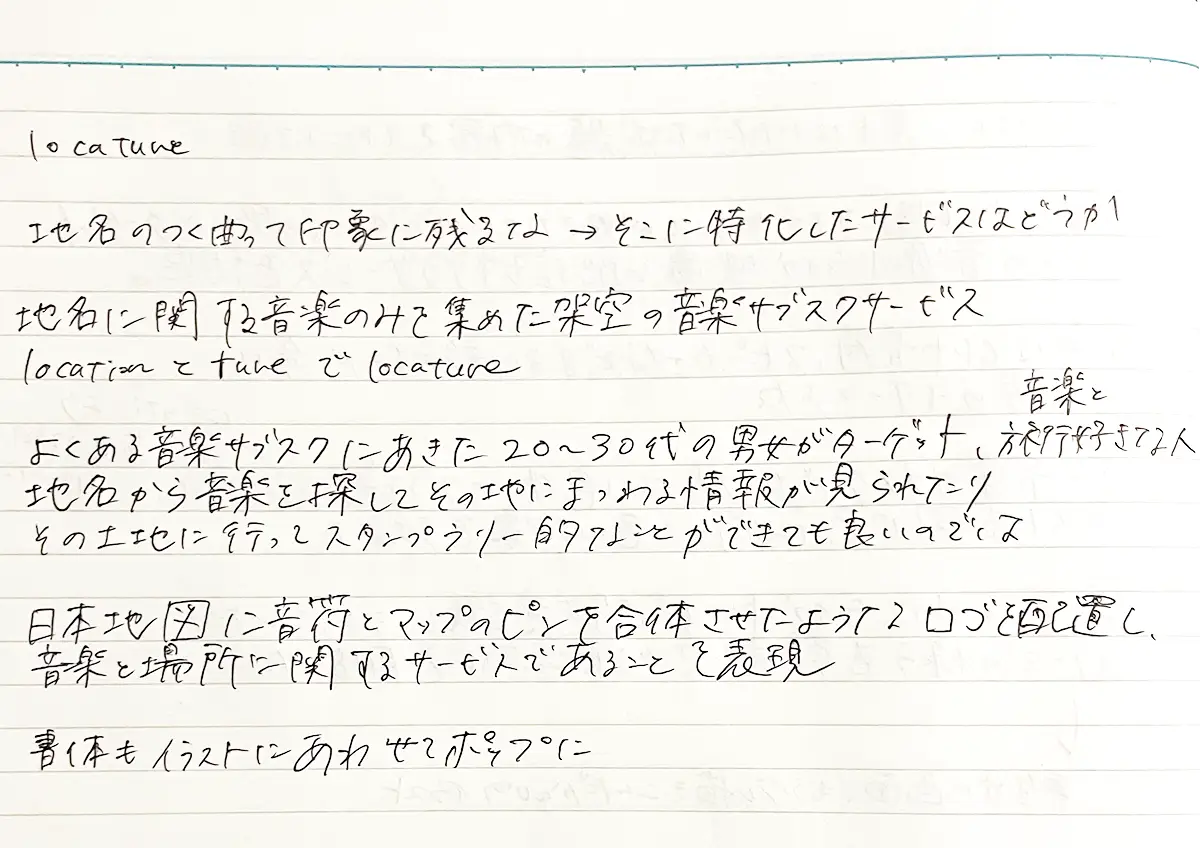 locature
地名のつく曲って印象に残るな → そこに特化したサービスはどうか!
地名に関する音楽のみを集めた架空の音楽サブスクサービス
location と tune で locature
音楽と
よくある音楽サブスクにあきた 20〜30代の男女がターゲット、旅行好きな人
地名から音楽を探してその地にまつわる情報が見られたり
その土地に行ってスタンプラリー的なことができても良いのでは
日本地図に音符とマップのピンを合体させたようなロゴを配置し、
音楽と場所に関するサービスであることを表現
書体もイラストにあわせてポップに